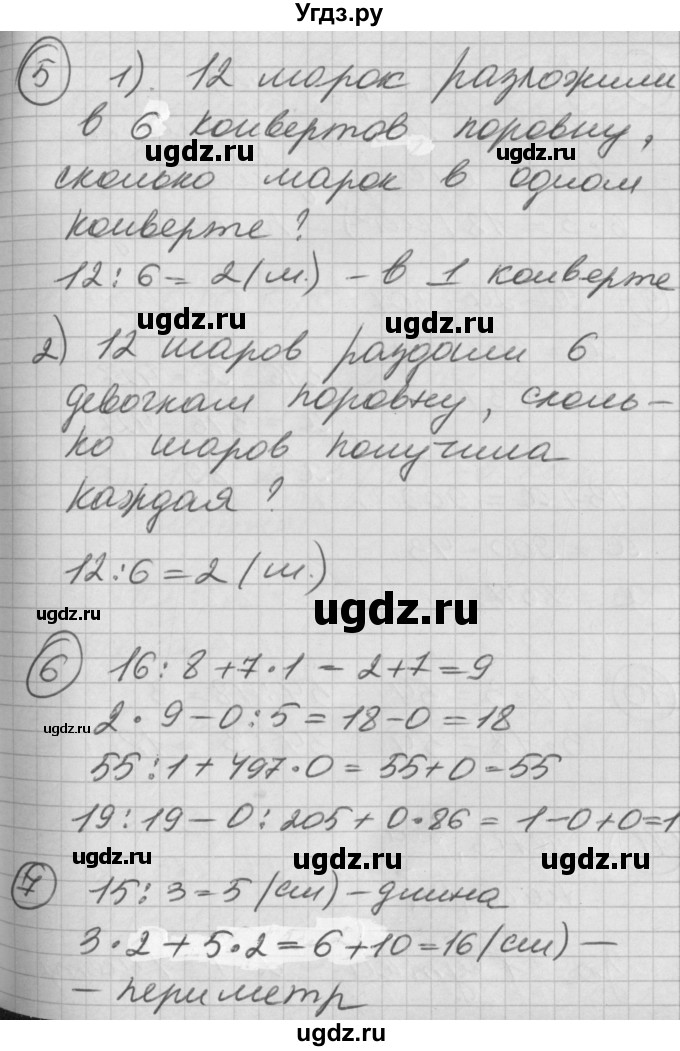 Угдз.ру
5 1). 12 марок разложили
в 6 конвертов поровну,
ugdz.ru ugdz.ru
сколько марок в одном
конверте?
12:6=2(м.) - в 1 конверте
ugdz.ru ugdz.ru
2) 12 шаров раздали 6
девочкам поровну, сколь-
ко шаров получила
каждая?
12:6=2(ш.)
ugdz.ru ugdz.ru
6 16:8+7·1=2+7=9
ugdz.ru 2·9-0:5=18-0=18
55:1+497·0=55+0=55
19:19-0:205+0·86=1-0+0=1
ugdz.ru ugdz.ru ugdz.ru
7 15:3=5(см)-длина
3·2+5·2=6+10=16(см)-
- периметр
ugdz.ru